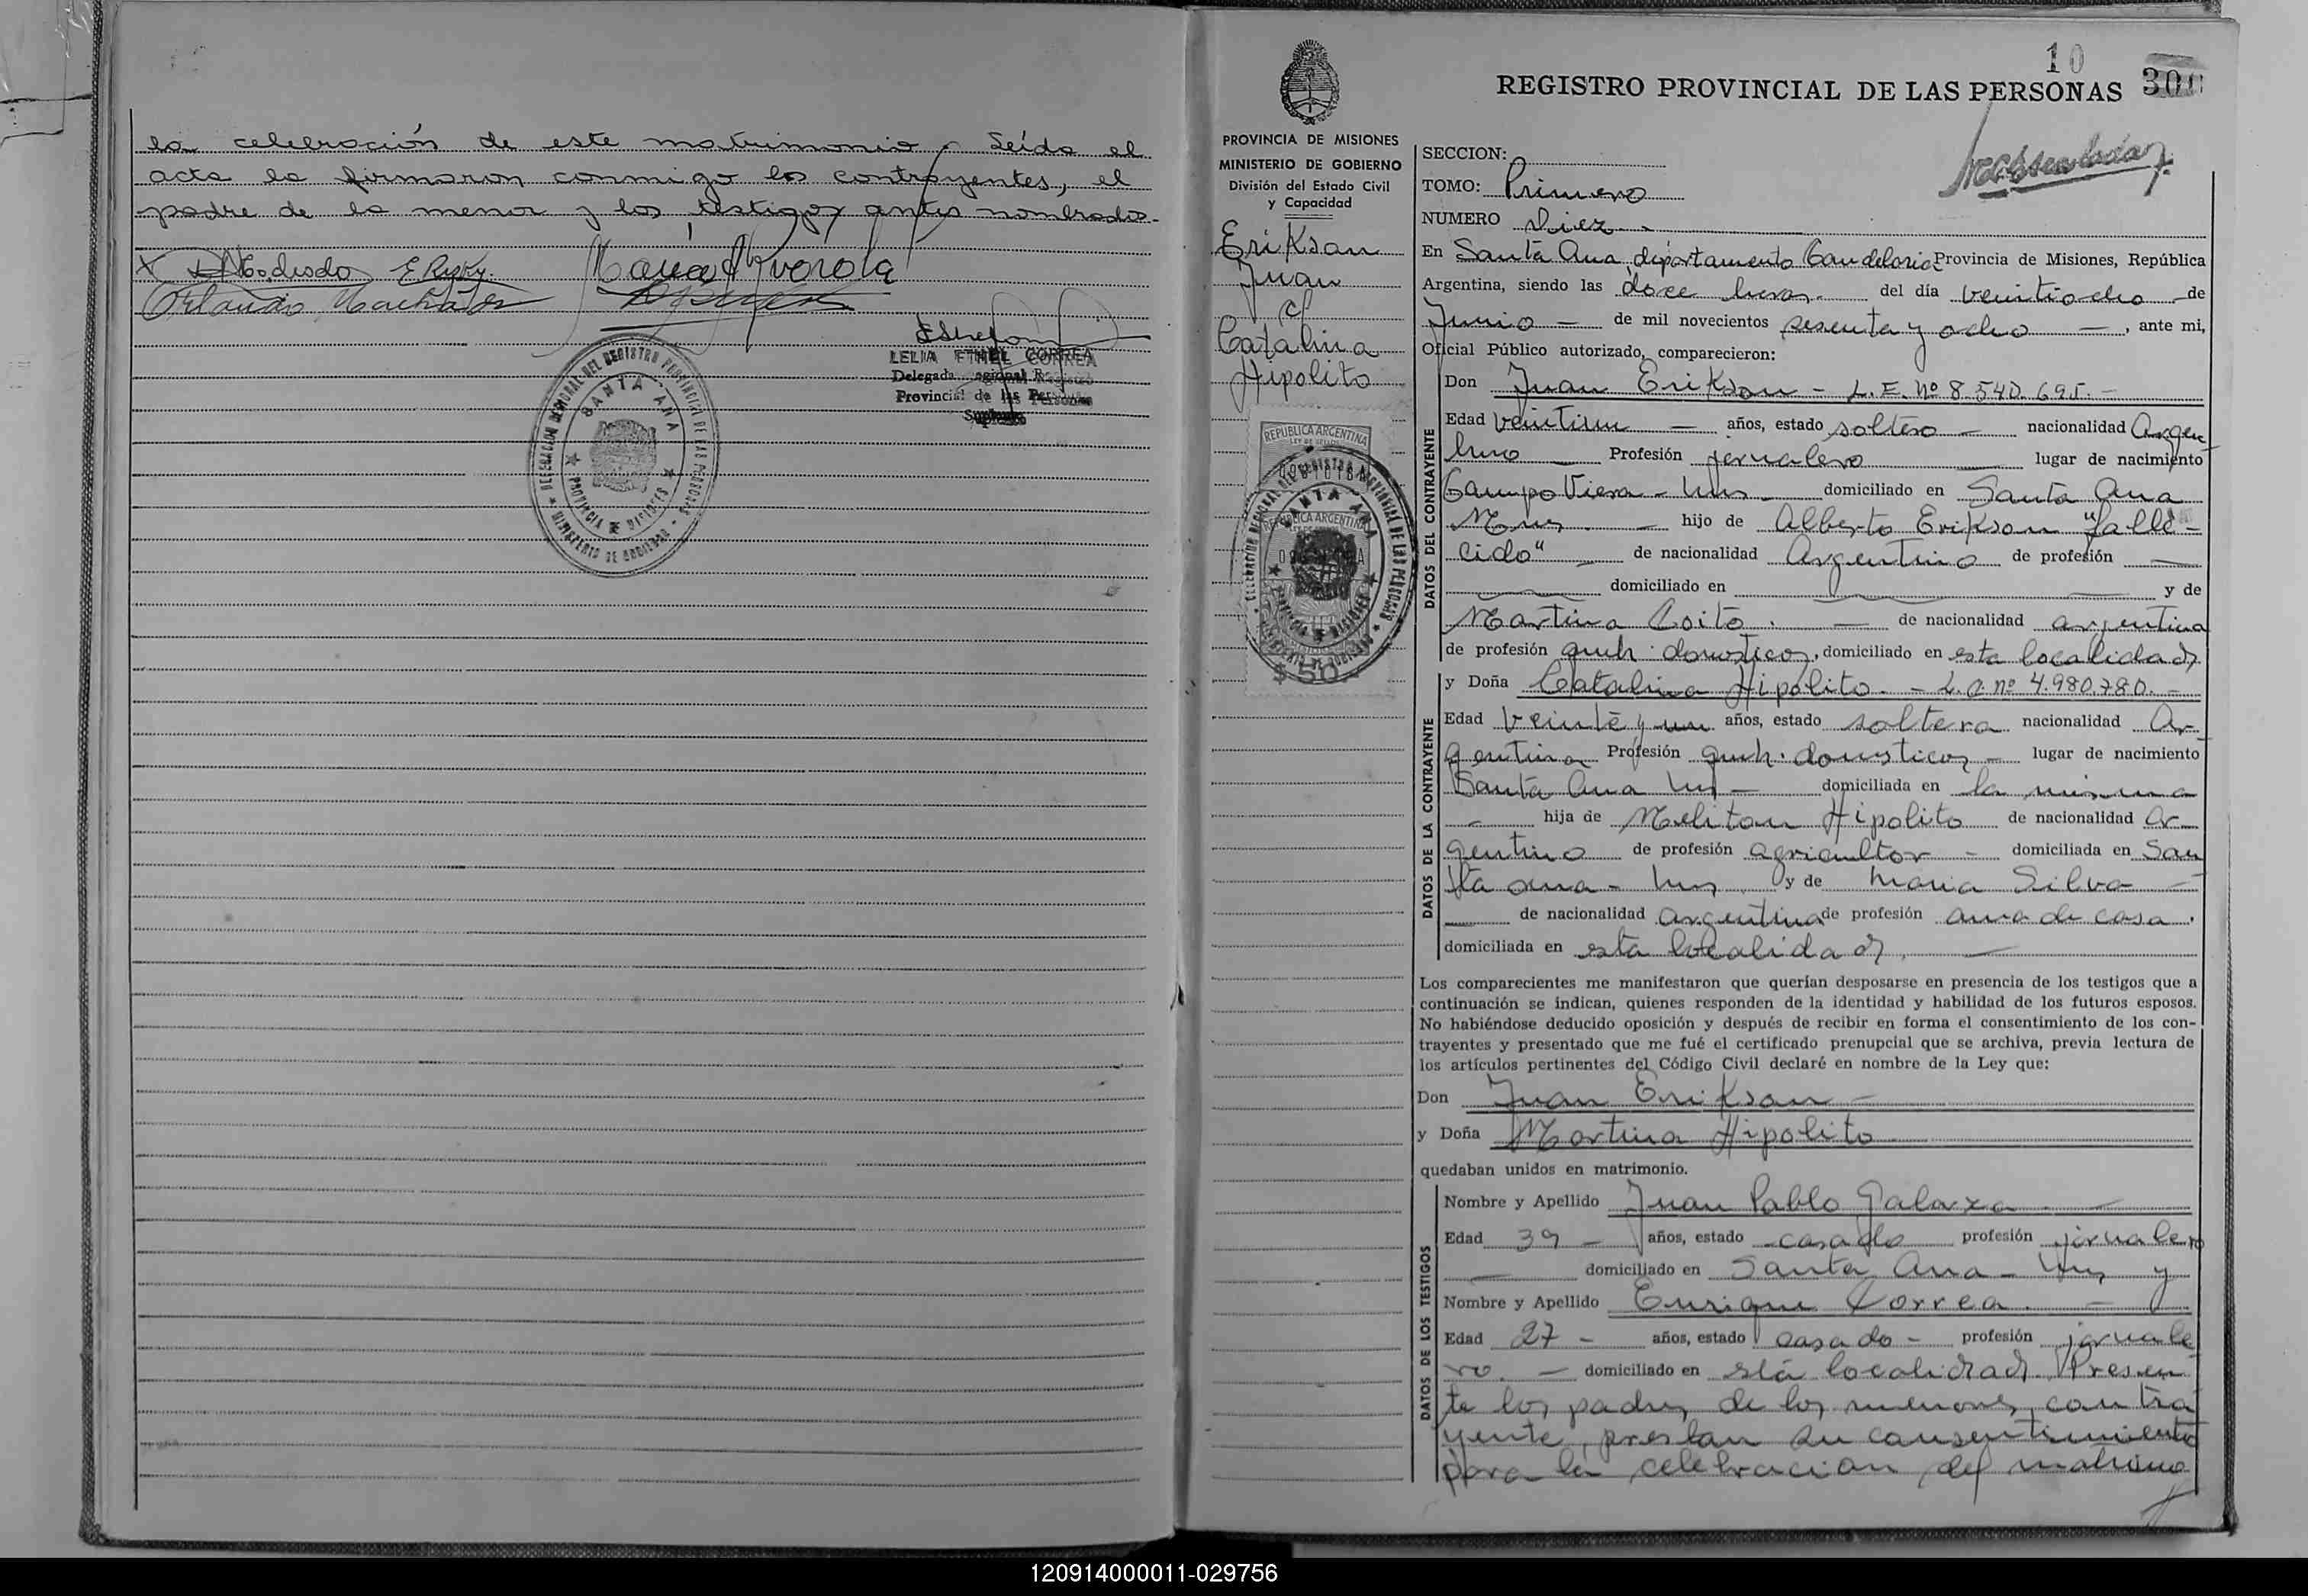 la celebración de este matrimonio. Leída el
acta la firmaron conmigo los contrayentes, el
padre de la menor y los testigos antes nombrados.-
LELIA ETHEL CORREA
Delegada Regional R
Provincial de las Personas
Suplente
DELEGACION REGIONAL DEL REGISTRO PROVINCIAL DE LAS PERSONAS
SANTA ANA
PROVINCIA DE MISIONES
MINISTERIO DE GOBIERNO
PROVINCIA DE MISIONES
MINISTERIO DE GOBIERNO
División del Estado Civil
y Capacidad
Erikson
Juan
c/
Catalina
Hipolito
REPUBLICA ARGENTINA
REPUBLICA ARGENTINA
SANTA ANA
$ 50.-
10
REGISTRO PROVINCIAL DE LAS PERSONAS 300
SECCION:
TOMO: Primero
NUMERO Diez.-
En Santa Ana departamento Candelaria Provincia de Misiones, República
Argentina, siendo las doce horas.- del día veintiocho - de
Junio - de mil novecientos sesenta y ocho -, ante mi,
Oficial Público autorizado, comparecieron:
DATOS DEL CONTRAYENTE
Don Juan Erikson - L.E. Nº 8.540.695.-
Edad veintiun - años, estado soltero - nacionalidad Argen
tino - Profesión jornalero - lugar de nacimiento
Campo Viera - Mns - domiciliado en Santa Ana
Mns. - hijo de Alberto Erikson "falle-
cido" - de nacionalidad Argentino de profesión -
domiciliado en - y de
Martina Coito. - de nacionalidad argentina
de profesión queh. domesticos, domiciliado en esta localidad
DATOS DE LA CONTRAYENTE
y Doña Catalina Hipolito. - L.C. nº 4.980.780.-
Edad veinte y un años, estado soltera nacionalidad Ar-
gentina Profesión queh. domesticos - lugar de nacimiento
Santa Ana Mns - domiciliada en la misma
- hija de Meliton Hipolito de nacionalidad Ar-
gentino de profesión agricultor - domiciliada en San
ta Ana - Mns y de Maria Silva -
de nacionalidad argentina de profesión ama de casa.
domiciliada en esta localidad, -
Los comparecientes me manifestaron que querían desposarse en presencia de los testigos que a
continuación se indican, quienes responden de la identidad y habilidad de los futuros esposos.
No habiéndose deducido oposición y después de recibir en forma el consentimiento de los con-
trayentes y presentado que me fué el certificado prenupcial que se archiva, previa lectura de
los artículos pertinentes del Código Civil declaré en nombre de la Ley que:
Don Juan Erikson -
y Doña Martina Hipolito
quedaban unidos en matrimonio.
DATOS DE LOS TESTIGOS
Nombre y Apellido Juan Pablo Galarza. -
Edad 39 - años, estado casado profesión jornalero
- domiciliado en Santa Ana - Mns y
Nombre y Apellido Enrique Correa. -
Edad 27 - años, estado casado - profesión jornale
ro. - domiciliado en esta localidad. Presen
te los padres de los menores contra
yente, prestan su consentimiento
para la celebracion del matrimo
120914000011-029756